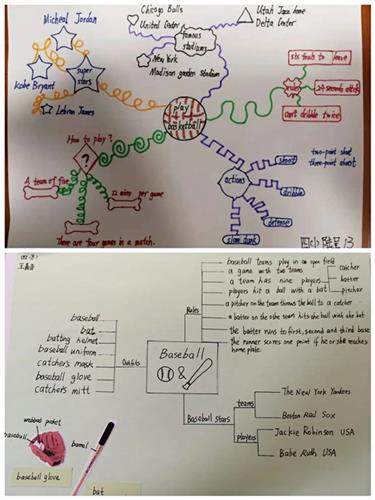 Chicago Bulls
United Center
Utah Jazz home
Delta Center
Micheal Jordan
famous
stadiums
New York
Madison garden Stadium
super
stars
Kobe Bryant
Lebron James
play
basketball
six fouls to leave
rules
24 seconds attack
can't dribble twice
How to play?
?
A team of five
12 mins per game
There are four games in a match.
two-point shoot
three-point shoot
shoot
actions
dribble
defense
slam dunk
baseball teams play in an open field
a game with two teams
a team has nine players
players hit a ball with a bat
catcher
batter
pitcher
a pitcher on the team throws the ball to a catcher
a batter on the other team hits the ball with the bat
the batter runs to first, second and third base
The runner scores one point if he or she reaches
home plate.
Rules
baseball
bat
batting helmet
baseball uniform
catcher's mask
baseball glove
catcher's mitt
Outfits
Baseball
&
Baseball stars
teams
The New York Yankees
Boston Red Sox
players
Jackie Robinson USA
Babe Ruth USA
webbed pocket
baseball
barrel
baseball glove
bat